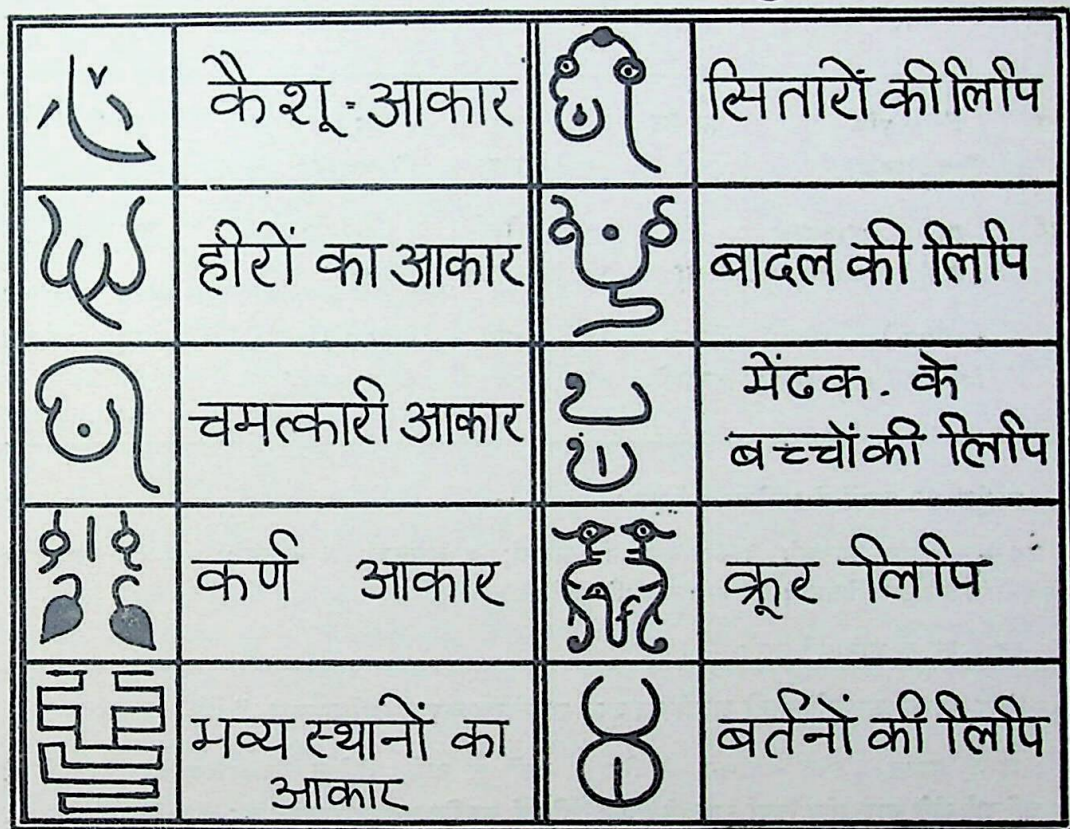 कैशू-आकार
सितारों की लिपि
हीरों का आकार
बादल की लिपि
चमत्कारी आकार
मेंढक. के
बच्चों की लिपि
कर्ण आकार
क्रूर लिपि
मव्य स्थानों का
आकार
बर्तनों की लिपि